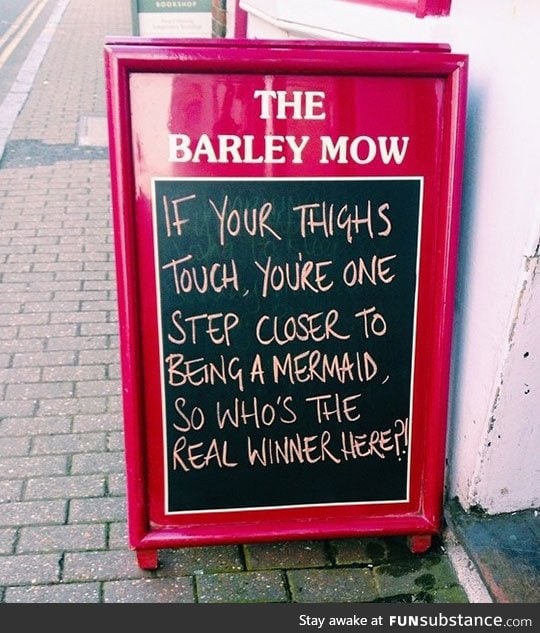 BOOKSHOP
THE
BARLEY MOW
IF YOUR THIGHS
TOUCH, YOU'RE ONE
STEP CLOSER TO
BEING A MERMAID,
SO WHO'S THE
REAL WINNER HERE?!
Stay awake at FUNsubstance.com